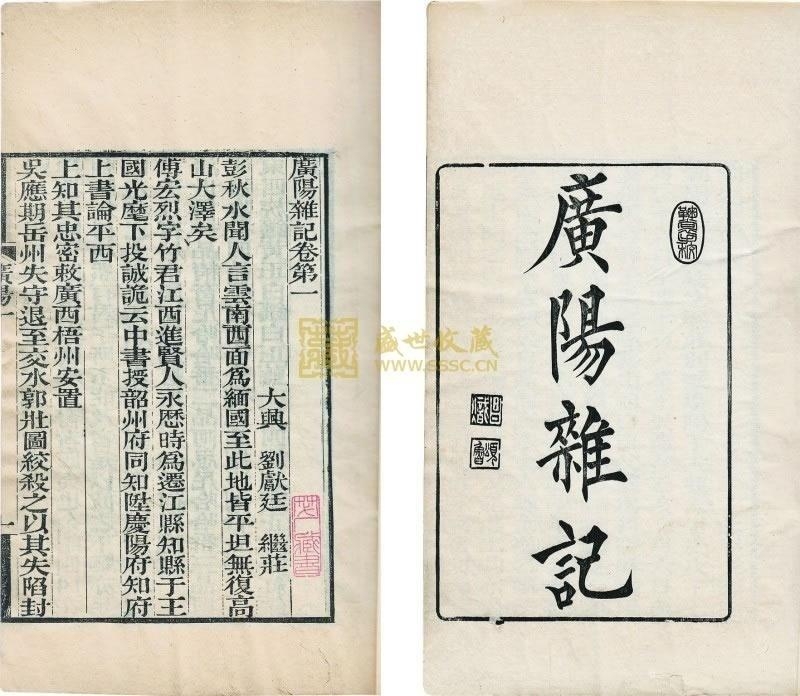 廣陽雜記
廣陽雜記卷第一
大興 劉獻廷 繼莊
彭秋水聞人言雲南西面爲緬國至此地皆平坦無復高
山大澤矣
傅宏烈字竹君江西進賢人永歷時爲遷江縣知縣于王
國光麾下投誠詭云中書授韶州府同知陞慶陽府知府
上書論平西
上知其忠密敕廣西梧州安置
吳應期岳州失守退至交水郭壯圖絞殺之以其失陷封
廣陽一
一
盛世收藏
www.sssc.cn